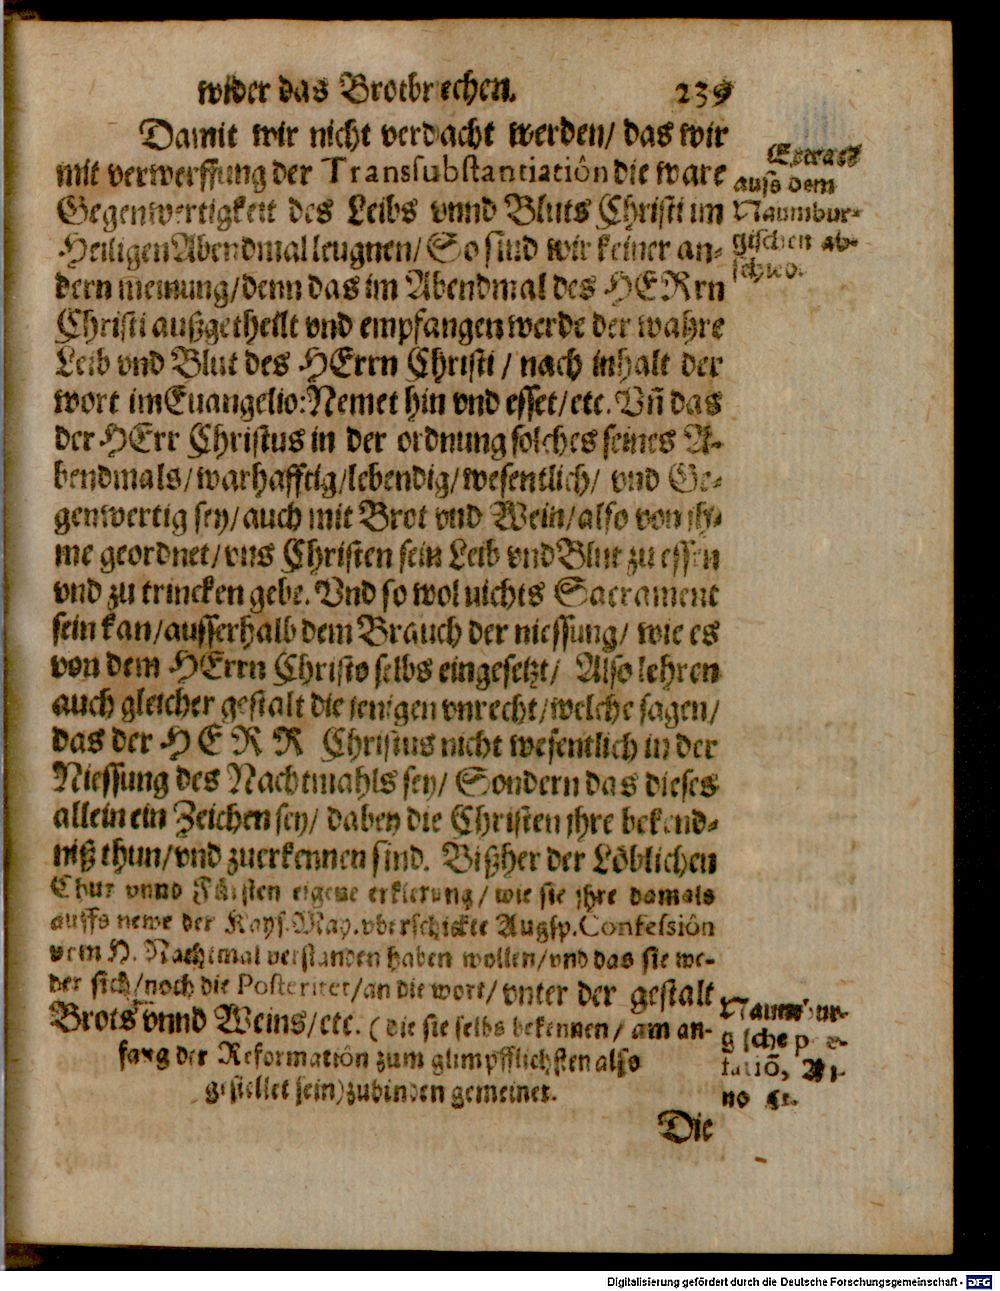 wider das Brotbrechen. 239
Damit wir nicht verdacht werden/ das wir
mit verwerffung der Transsubstantiatiôn die ware
Gegenwertigkeit des Leibs vnnd Bluts Christi im
Heiligen Abendmal leugnen/ So sind wir keiner an-
dern meinung/denn das im Abendmal des HERrn
Christi außgetheilt vnd empfangen werde der wahre
Leib vnd Blut des HErrn Christi / nach inhalt der
wort im Euangelio: Nemet hin vnd esset/etc. Vñ das
der HErr Christus in der ordnung solches seines A-
bendmals/warhafftig/lebendig/wesentlich/ vnd Ge-
genwertig sey/auch mit Brot vnd Wein/also von ih-
me geordnet/vns Christen sein Leib vnd Blut zu essen
vnd zu trincken gebe. Vnd so wol nichts Sacrament
sein kan/ausserhalb dem Brauch der niessung/ wie es
von dem HErrn Christo selbs eingesetzt/ Also lehren
auch gleicher gestalt die jenigen vnrecht/welche sagen/
das der HERR Christus nicht wesentlich in der
Niessung des Nachtmahls sey/ Sondern das dieses
allein ein Zeichen sey/ dabey die Christen ihre bekend-
niß thun/vnd zuerkennen sind. Bißher der Löblichen
Chur vnnd Fürsten eigene erklerung/ wie sie ihre damals
auffs newe der Kays. May. vberschickte Augsp. Confessiôn
vom H. Nachtmal verstanden haben wollen/vnd das sie we-
der sich/noch die Posteritet/an die wort/ vnter der gestalt
Brots vnnd Weins/etc. (die sie selbs bekennen/ am an-
fang der Reformatiôn zum glimpfflichsten also
gestellet sein) zubinden gemeinet.
Die
Extract
auß dem
Naumbur-
gischen ab-
schied.
Naumbur-